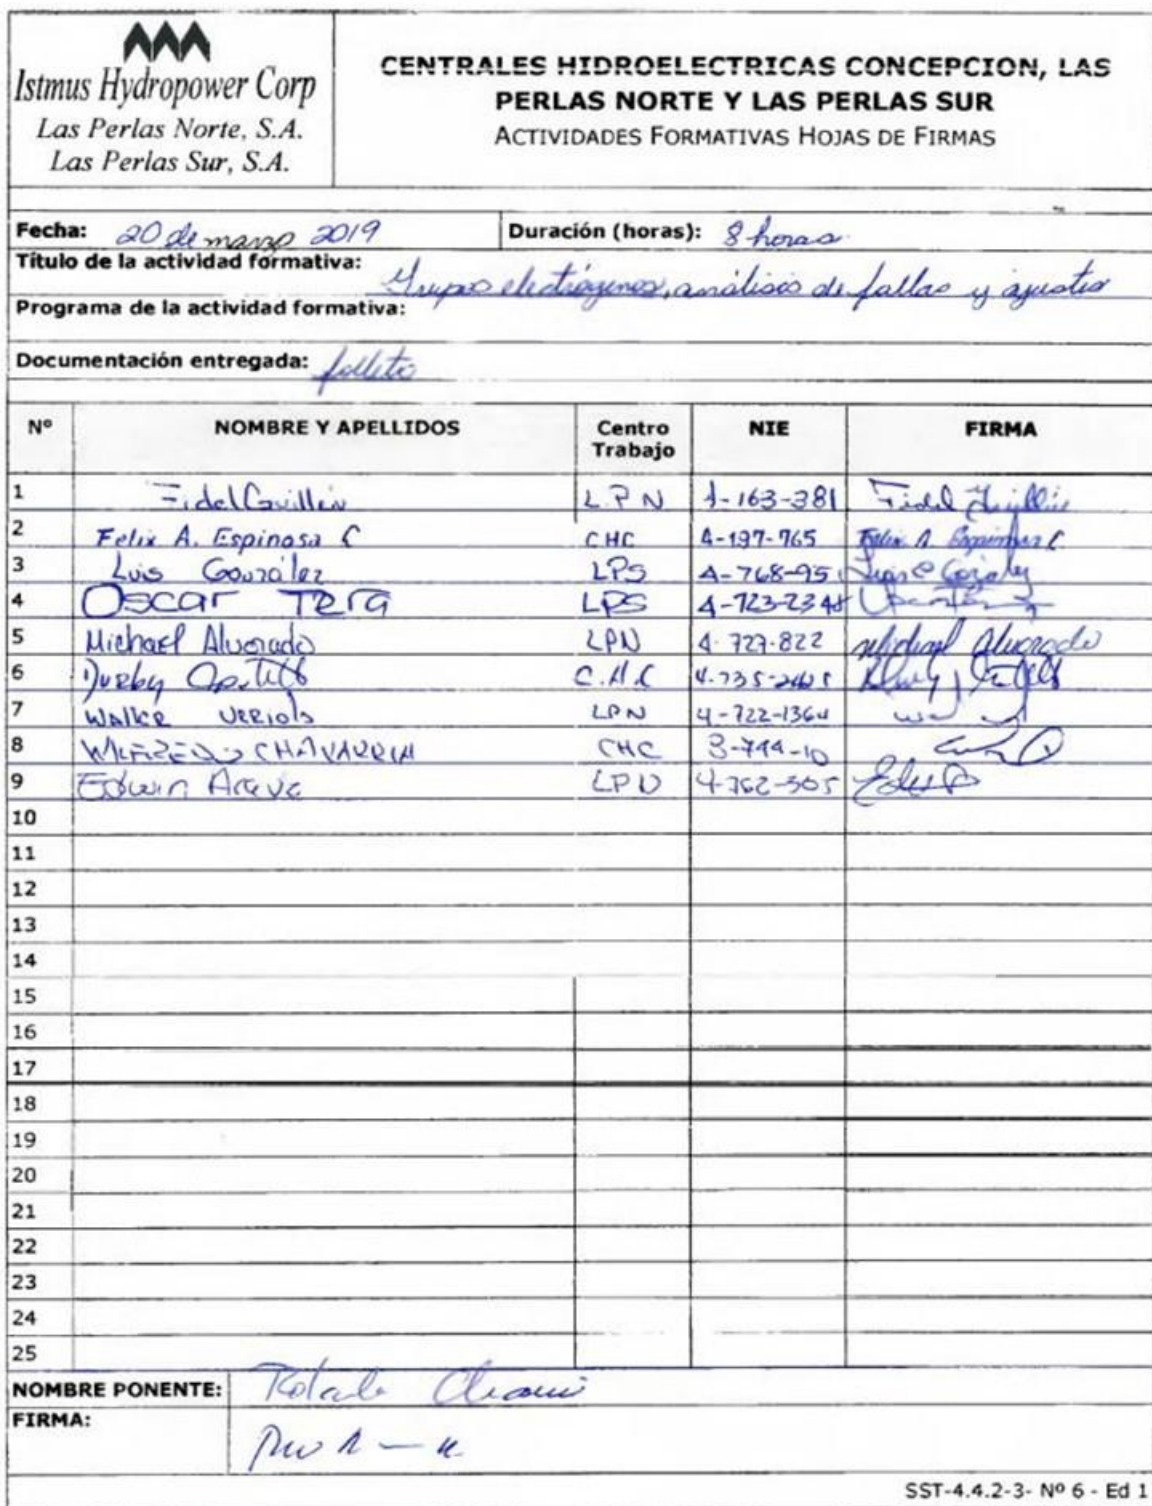 Istmus Hydropower Corp
Las Perlas Norte, S.A.
Las Perlas Sur, S.A.
CENTRALES HIDROELECTRICAS CONCEPCION, LAS
PERLAS NORTE Y LAS PERLAS SUR
ACTIVIDADES FORMATIVAS HOJAS DE FIRMAS
Fecha: 20 de marzo 2019 Duración (horas): 8 horas
Título de la actividad formativa: Grupos electrógenos, análisis de fallas y ajustes
Programa de la actividad formativa:
Documentación entregada: folleto
Nº NOMBRE Y APELLIDOS Centro Trabajo NIE FIRMA
1 Fidel Guillén L.P.N 4-163-381 Fidel Guillén
2 Felix A. Espinosa C CHC 4-197-765 Felix A. Espinosa C
3 Luis González LPS 4-768-95
4 Oscar LPS 4-723-2348
5 Michael Alvarado LPN 4-727-822 Michael Alvarado
6 C.H.C
7 LPN 4-722-1364
8 WILFREDO CHAVARRIA CHC
9 Edwin LPN 4-762-305
10
11
12
13
14
15
16
17
18
19
20
21
22
23
24
25
NOMBRE PONENTE:
FIRMA:
SST-4.4.2-3- Nº 6 - Ed 1